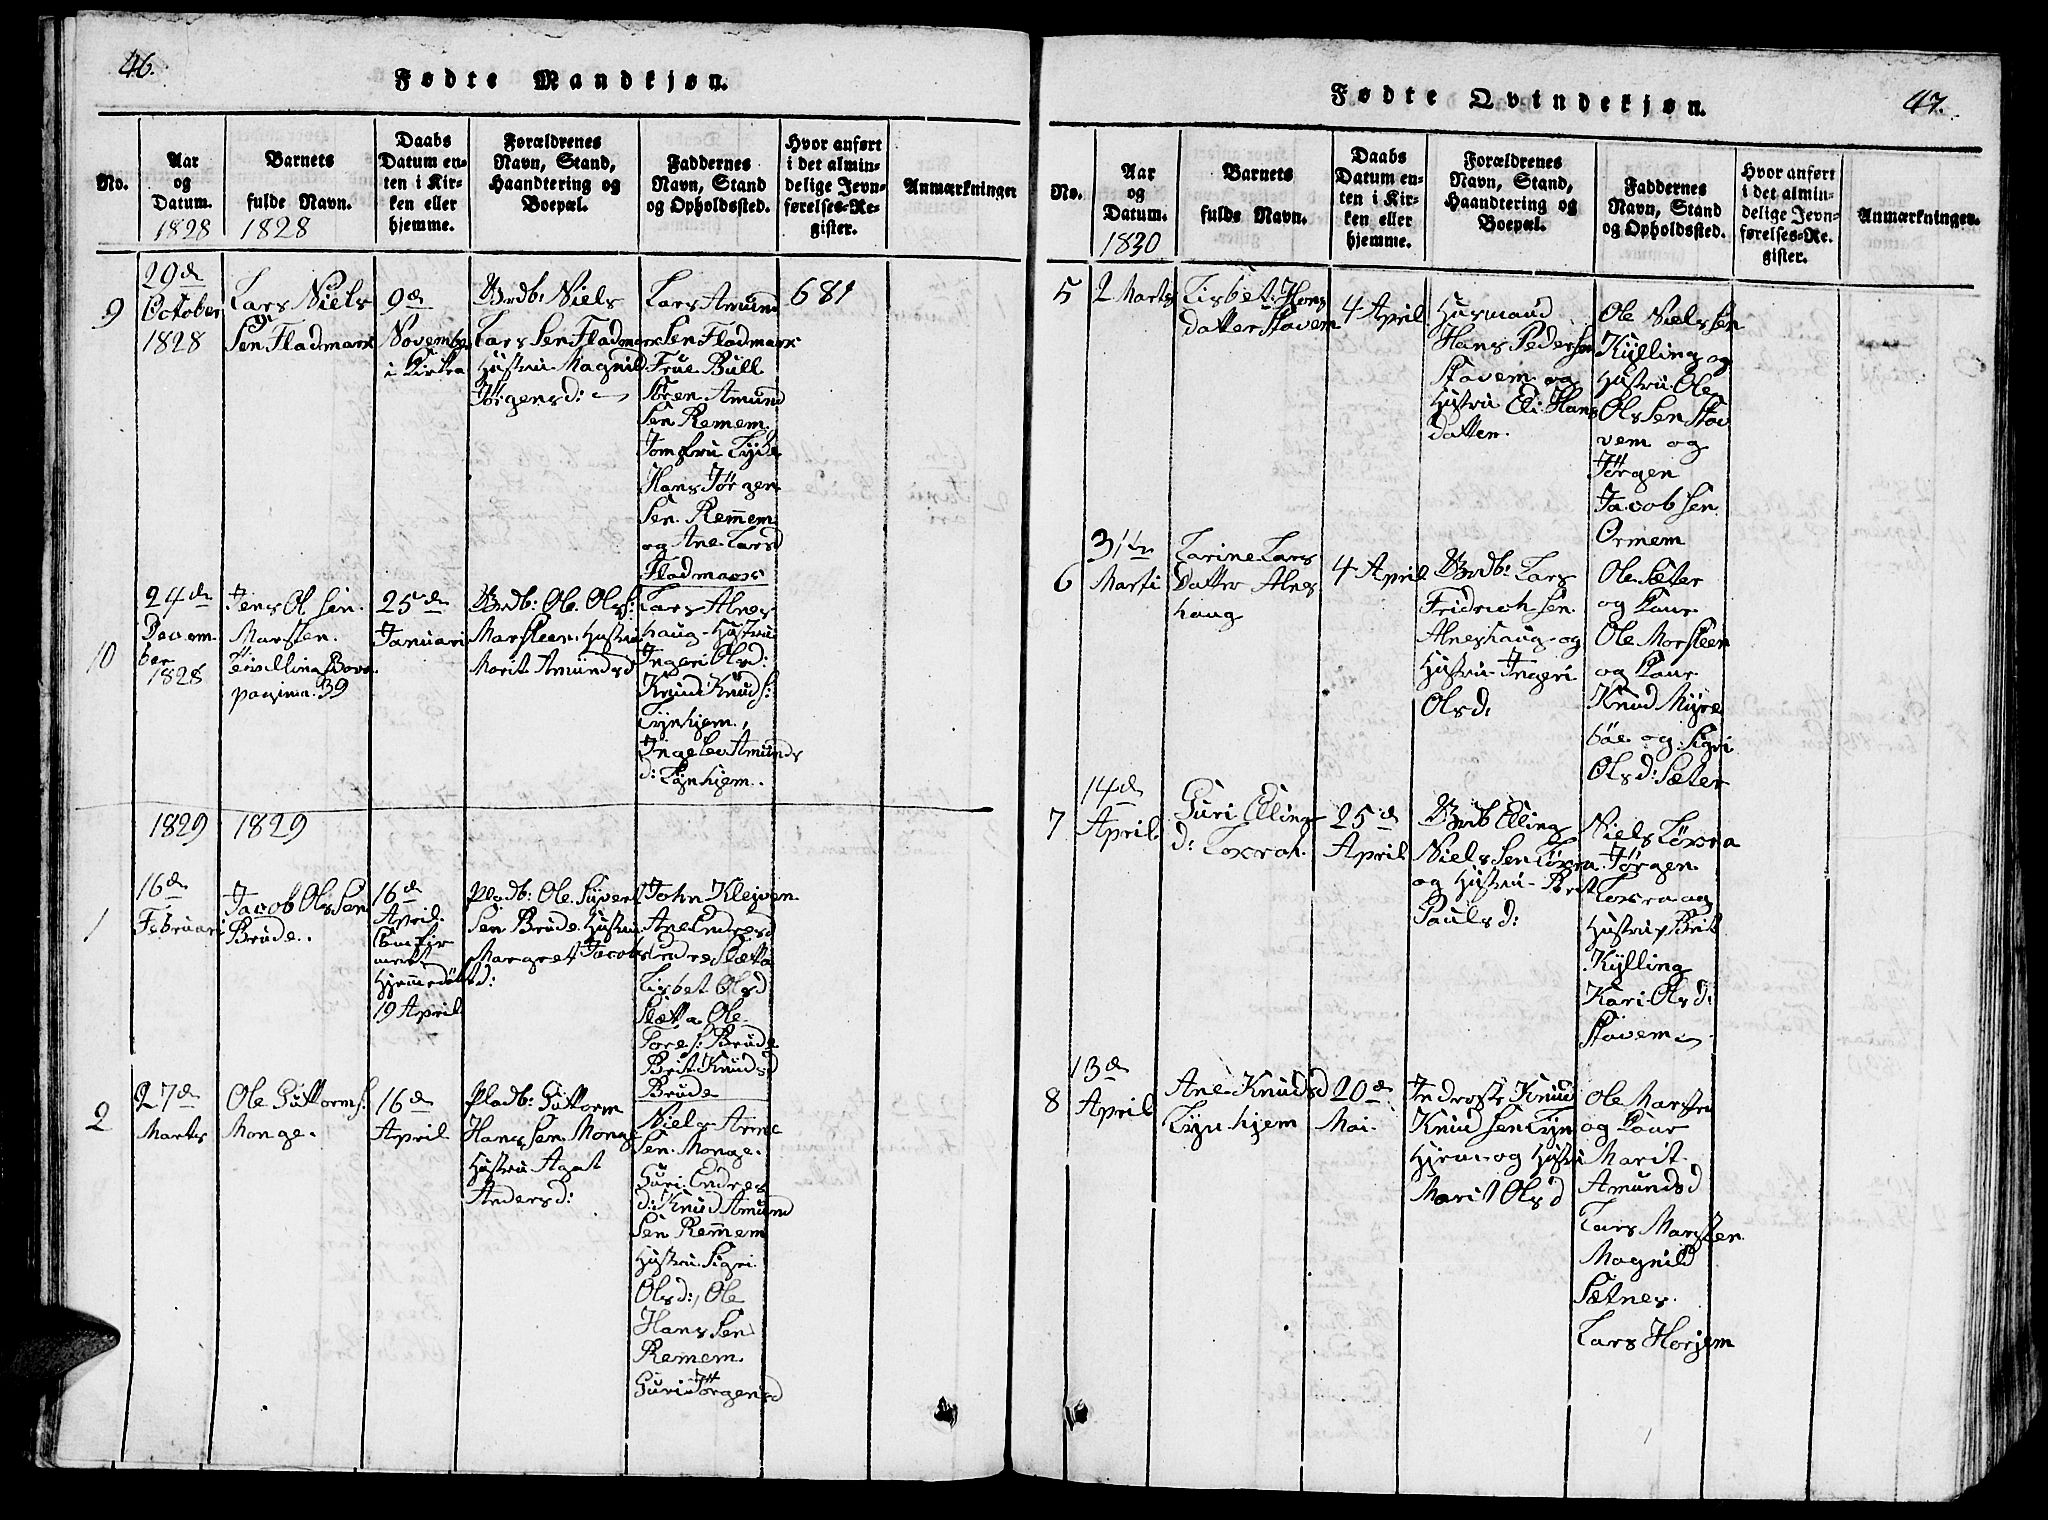 46.
Fødte Mandkjøn.
No.
Aar
og
Datum.
1828
Barnets
fulde Navn.
1828
Daabs
Datum en-
ten i Kir-
ken eller
hjemme.
Forældrenes
Navn, Stand,
Haandtering og
Boepæl.
Faddernes
Navn, Stand
og Opholdssted.
Hvor anført
i det almin-
delige Jevn-
førelses-Re-
gister.
Anmærkninger
9
29de
October
1828
Lars Niels
Sen Fladmark
9de
November
i Kirka
Brdb: Niels
Lars Sen Fladmark
Hustru Magnild
Jørgensd:
Lars Amund
Sen Fladmark
Frue Bull
Sören Amund
Sen Remem.
Jomfru Lyde
Hans Jørgen
Sen. Remem
og Ane Larsd
Fladmark
681
10
24de
Decem
ber
1828
Jens Ol Sen.
Marsten.
Tvilling Born
pagina. 39
25de
Januari
Brdb: Ole. Ols:
Marsteen. Hustru
Marit Amundsd
Lars Alnes
haug. Hustru
Ingeri Olsd:
Knud Knuds:
Lynhjem.,
Ingelev Amunds
d: Lynhjem.
1829
1829
1
16de
Februari
Jacob Ols Sen
Brude.
16de
April.
Comfir
meret
Hjemedöbt
19 April
Pladb: Ole Siver
Sen Brude. Hustru
Margret Jacobs
d:
John Klejven
Ane Endresd
Endre Sletta
Lisbet Olsd
Sletta Ole
Tores: Brude
Brit Knudsd
Brude
2
27de
Marts
Ole Guttorms:
Monge.
16de
April
Pladb: Guttorm
Hans Sen Monge
Hustru Agat
Andersd:
Niels Arne
Sen. Monge.
Guri. Endres
d: Knud Amund
Sen Remem
Hustru. Sigri
Olsd:, Ole
Hans Sen
Remem.
Guri Jörgensd
47.
Fødte Qvindekjøn.
No.
Aar
og
Datum.
1830
Barnets
fulde Navn.
Daabs
Datum en-
ten i Kir-
ken eller
hjemme.
Forældrenes
Navn, Stand,
Haandtering og
Boepæl.
Faddernes
Navn, Stand
og Opholdssted.
Hvor anført
i det almin-
delige Jevn-
førelses-Re-
gister.
Anmærkninger.
5
2 Marts
Lisbet: Hans
datter Stavem
4 April
Husmand
Hans Peder Sen
Stavem og
Hustru Eli Hans
datter.
Ole Niels Sen
Kylling og
Hustru. Ole
Ols Sen Sta
vem og
Jörgen
Jacob Sen
Ormem
6
31te
Marti
Larine Lars
datter Alnes
haug
4 April
Brdb: Lars
Fridrich Sen.
Alneshaug og
Hustru Ingeri
Olsd:
Ole Sæter
og Kaur
Ole Marsteen
og Kaur
Knud Myre
böe og Sigri
Olsd: Sæter
7
14de
April
Guri Elling
d: Loxrah.
25de
April
Brdb Elling
Niels Sen Löxra
og Hustru Brit
Paulsd:
Niels Löxra
Jörgen
Loxra og
Hustru Brit
Kylling
Kari Olsd:
Stavem
8
13de
April
Ane Knudsd
Lynhjem
20de
Mai.
Inderste Knud
Knud Sen Lyn
Hjem og Hustru
Marit Olsd
Ole Marsten
og Kaur
Marit
Amundsd
Lars Marsten
Magnild
Sætnes.
Lars Horjem